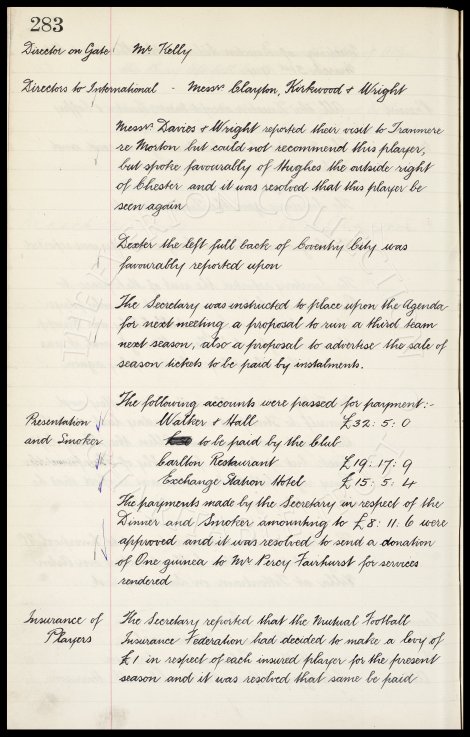 283
Director on Gate Mr Kelly
Directors to International - Messrs. Clayton, Kirkwood & Wright
Messrs. Davies & Wright reported their visit to Tranmere
re Morton but could not recommend this player,
but spoke favourably of Hughes the outside right
of Chester and it was resolved that this player be
seen again
Dexter the left full back of Coventry City was
favourably reported upon
The Secretary was instructed to place upon the Agenda
for next meeting a proposal to run a third team
next season, also a proposal to advertise the sale of
season tickets to be paid by instalments.
The following accounts were passed for payment:-
Presentation Walker & Hall £32:5:0
and Smoker to be paid by the Club
Carlton Restaurant £19:17:9
Exchange Station Hotel £15:5:4
The payments made by the Secretary in respect of the
Dinner and Smoker amounting to £8:11:6 were
approved and it was resolved to send a donation
of One guinea to Mr Percy Fairhurst for services
rendered
Insurance of The Secretary reported that the Mutual Football
Players Insurance Federation had decided to make a levy of
£1 in respect of each insured player for the present
season and it was resolved that same be paid